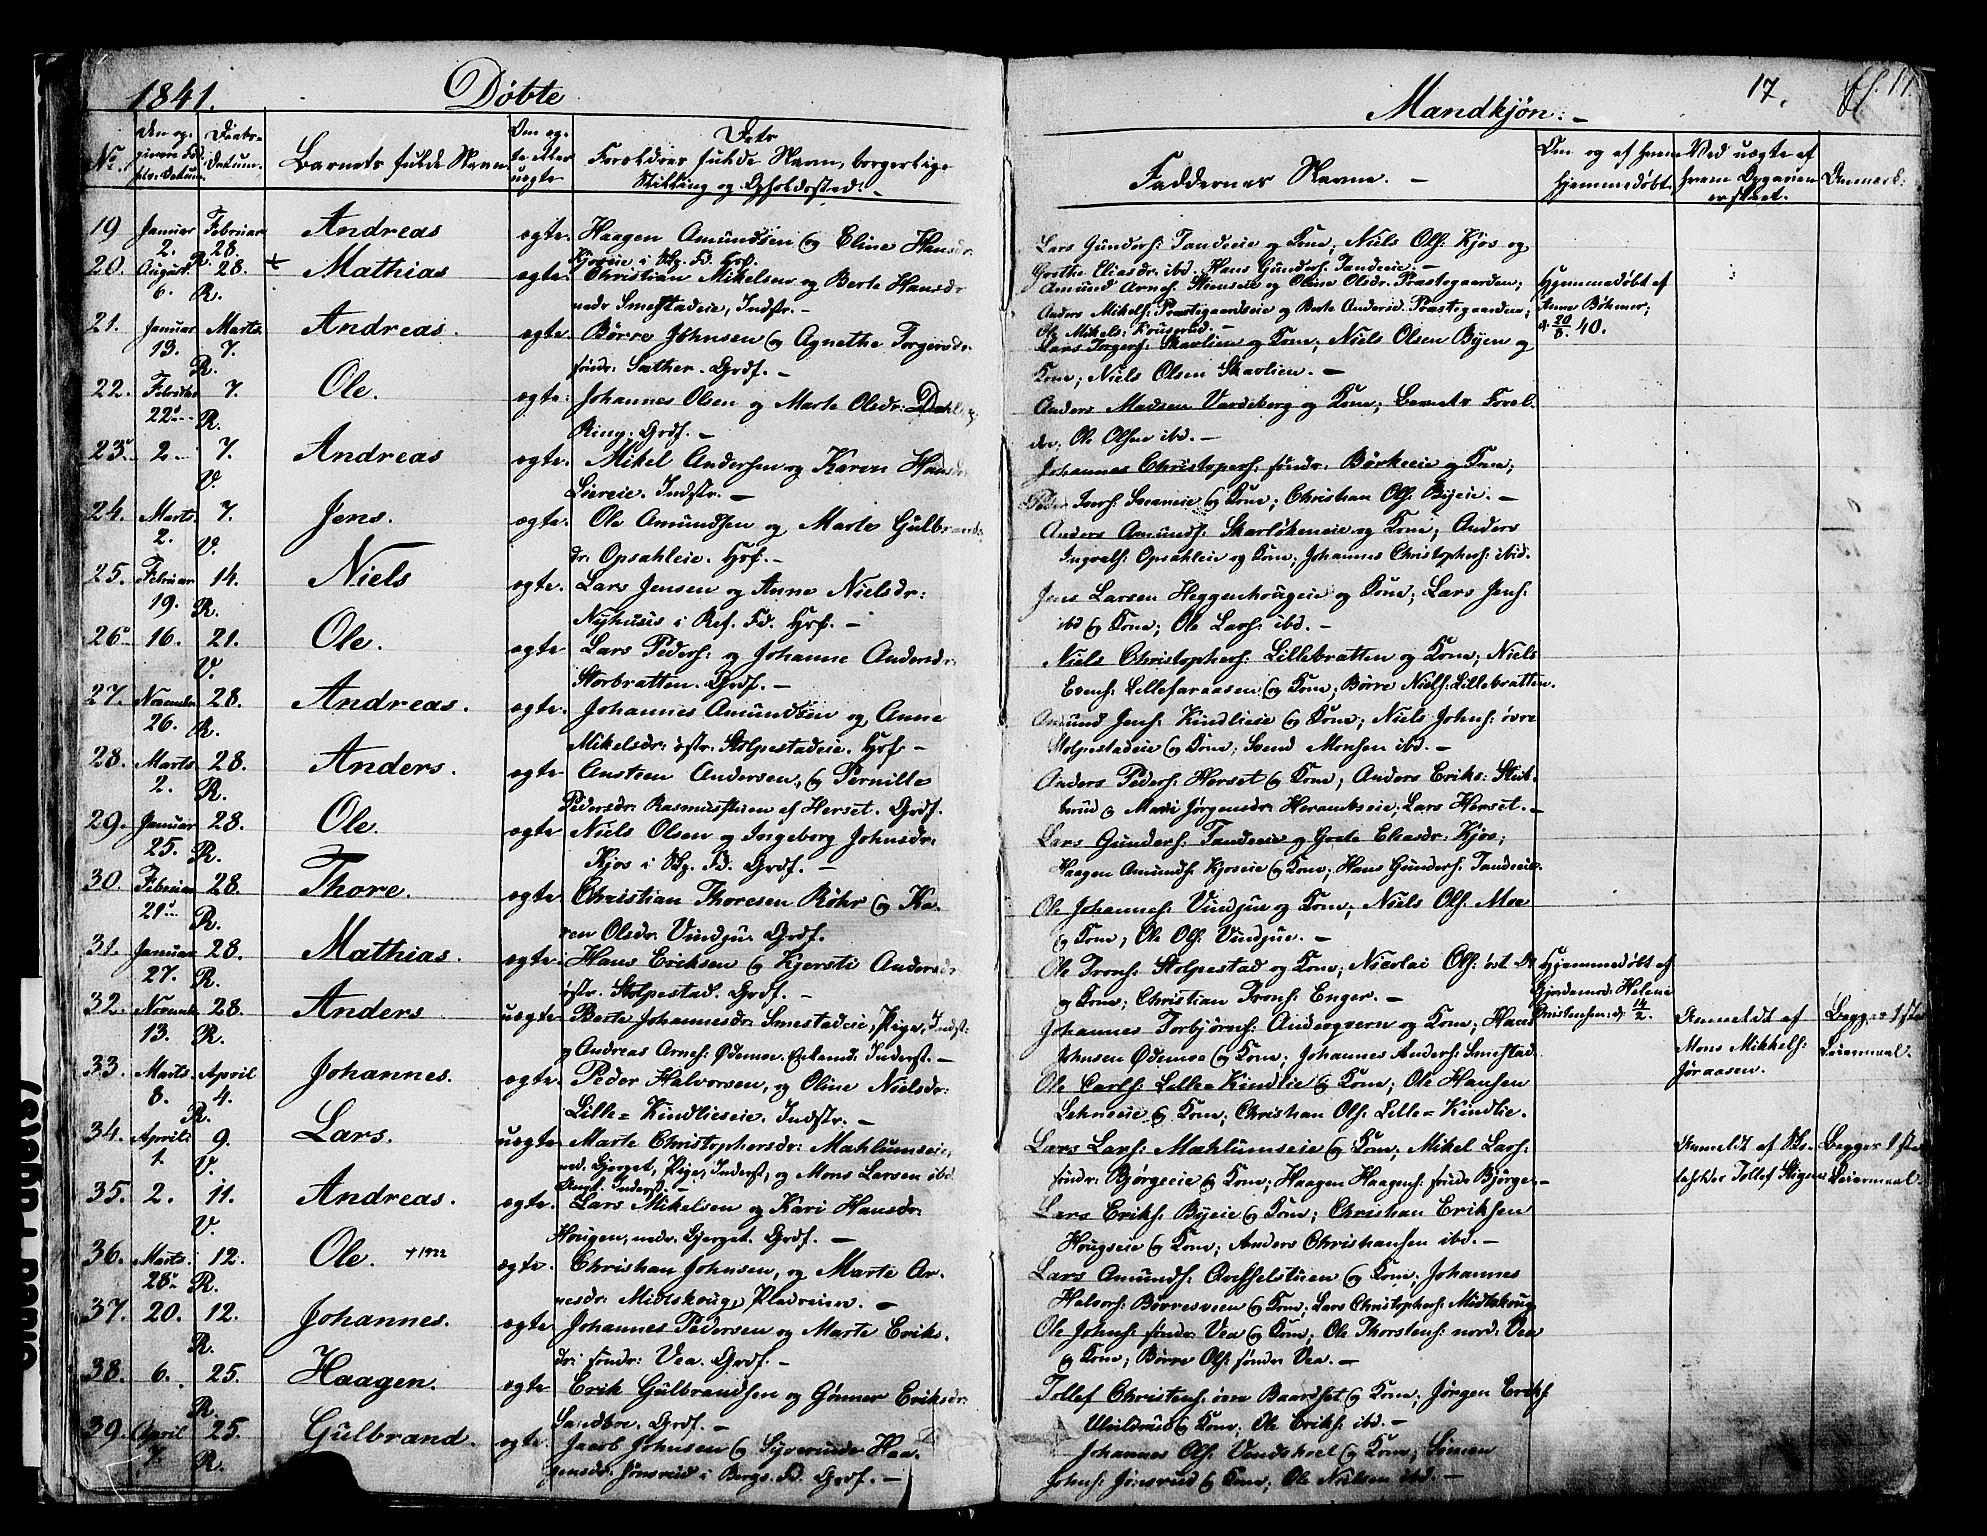 1841. Døbte
Mandkjøn: -
17.
No
Barnets fulde Navn
Forældres fulde Navn, borgerlige
Stilling og Opholdssted. -
Faddernes Navne. -
hjemmedøbt.
19 Januar Februar Andreas ægte. Haagen Amundsen og Eline Hansdr.
2. 28. R.
Lars Gunders: Tandeeie og Kone; Niels Ols: Kjos og
Grethe Eliasdr. ibd. Hans Gunders: Tandeeie. -
20. August 28. Mathias ægte. Christian Mikelsen og Berte Hansdr
6. R. nedr Smestadeie, Indstr. -
Amund Arnes: Stenseie og Oline Olsdr. Præstegaarden;
Anders Mikels: Præstegaardseie og Berte Andersd. Præstegaarden;
Hjemmedøbt af
Anne Bøhmer;
40.
21. Januar Marts Andreas. ægte. Børre Johnsen og Agnethe Torgersdr.
13. 7. R. søndr: Sæther. Grdf. -
Lars Torgers: Skavlien og Kone; Niels Olsen Byen og
Kone; Niels Olsen Skavlien. -
22. Februar 7. Ole. ægte. Johannes Olsen og Marte Olsdr: Dahl
22 R. Ring; Grdf. -
Anders Madsen Vardeberg og Kone; Barnets Forel-
dre. Ole Olsen ibd. -
23. 2 7. Andreas ægte. Mikel Andersen og Karen Hansdr
V. Liereie. Indstr. -
Johannes Christophers: søndr: Børkeeie og Kone;
Peder Ivers: Sveneeie og Kone; Christian Ols: Byeie. -
24. Marts 7. Jens. ægte. Ole Amundsen og Marte Gulbrands
2. V. dr. Opsahleie. Hrf. -
Anders Amunds: Skarløkeneie og Kone; Anders
Ingvals: Opsahleie og Kone; Johannes Christophers: ibid.
25. Februar 14. Niels ægte. Lars Jensen og Anne Nielsdr:
19. R. Nyhusis i Ref. Fd. Hrf. -
Jens Larsen Heggenhougeie og Kone; Lars Jens:
ibd og Kone; Ole Lars: ibd. -
26 16. 21. Ole. ægte Lars Peders: og Johanne Andersdr:
V. Storbratten. Grdf. -
Niels Christophers: Lillebratten og Kone; Niels
Evens: Lillefaraasen og Kone; Børre Niels: Lillebratten.
27. November 28. Andreas. ægte. Johannes Amundsen og Anne
26. R. Mikelsdr: østr: Stolpestadeie. Hrf. -
Amund Jens: Kindlieie og Kone; Niels Johns: øvre
Stolpestadeie og Kone; Svend Monsen ibd. -
28. Marts 28. Anders. ægte Austeen Andersen, og Pernille
2. R. Pedersdr: Rasmusstuen af Herset. Grdf.
Anders Peders: Herset og Kone; Anders Eriks: Stub-
berud og Mari Jørgensdr: Herambseie; Lars Herset. -
29. Januar 28. Ole. ægte Niels Olsen og Ingeborg Johnsdr.
25. R. Kjos i Fd. Grdf. -
Lars Gunders: Tandeeie og Grete Eliasdr: Kjos;
Haagen Amunds: Kjoseie og Kone; Hans Gunders: Tandeeie.
30. Februar 28. Thore. ægte Christian Thoresen Røhr og Ka-
21 R. ren Olsdr. Vindju. Grdf.
Ole Johannes: Vindjue og Kone; Niels Ols: Moe
og Kone; Ole Ols: Vindjue. -
31. Januar 28. Mathias. ægte. Hans Eriksen og Kjersti Andersdr
27. R. østr. Stolpestad. Grdf. -
Ole Trons: Stolpestad og Kone; Nicolai Ols: øst St
og Kone; Christian Trons: Enger. -
Hjemmedøbt af
Gjordemod: Helene
Christensen: d: 14/2.
32. Novemb 28. Anders uægte Berte Johannesdr: Smestadeie, Pige, Indst:
13. R. og Andreas Arnes: Ødemoe, Enkemd. Inderst. -
Johannes Torbjørns: Andergvern og Kone; Hans
Johnsen Ødemoe og Kone; Johannes Anders: Smestad.
Anmeldt af
Mons Mikkels:
Jøraasen.
Begges 1ste
Leiermaal.
33. Marts April Johannes. ægte Peder Halvorsen, og Oline Nielsdr:
8. 4. R. Lille=Kindlieeie. Indstr. -
Ole Carls: Lille=Kindlie og Kone; Ole Hansen
Lehneeie og Kone; Christian Ols: Lille=Kindlie.
34. April 9. Lars. uægte Marte Christophersdr: Mæhlumseie,
1. V. ned. Bjerget, Pige, Inderst, og Mons Larsen ibd
Lars Lars: Mæhlumseie og Kone; Mikel Lars:
søndr: Bjørgeeie og Kone; Haagen Haagens: søndr Bjørge. -
Anmeldt af
Tollef Stigen
Begges 1ste
Leiermaal.
35. 2. 11. Andreas. ægte. Lars Mikelsen og Kari Hansdr:
V. Hougen, nedr. Bjerget. Grdf. -
Lars Eriks: Byeie og Kone; Christian Eriksen
Hougseie og Kone; Anders Christiansen ibd. -
36. Marts 12. Ole. +1922 ægte. Christian Johnsen, og Marte Ar-
28 R. nesdr: Midtskoug, Pladseien. -
Lars Amunds: og Kone; Johannes
Halvors: Børresveen og Kone; Lars Christophers: Midtskoug
37. 20. 12. Johannes. ægte Johannes Pedersen og Marte Eriks-
R. dr: søndr: Vea. Grdf. -
Ole Johns: søndr Vea og Kone; Ole Thorstens: nord: Vea
og Kone; Børre Ols: søndr Vea. -
38. 6. 25. Haagen. ægte Erik Gulbrandsen og Gønner Eriksdr.
R. Sandboe. Grdf. -
Tollef Christens: øvre Baardset og Kone; Jørgen Eriks:
Ulvildrud og Kone; Ole Eriks: ibd. -
39. April 25. Gulbrand. ægte. Jacob Johnsen og Syverinde Haa-
7. R. gensdr. Jønsrud i Bergs. Fd. Grdf. -
Johannes Ols: Vendskoel og Kone; Simen
Johns: Jønsrud og Kone; Ole Nielsen ibd. -